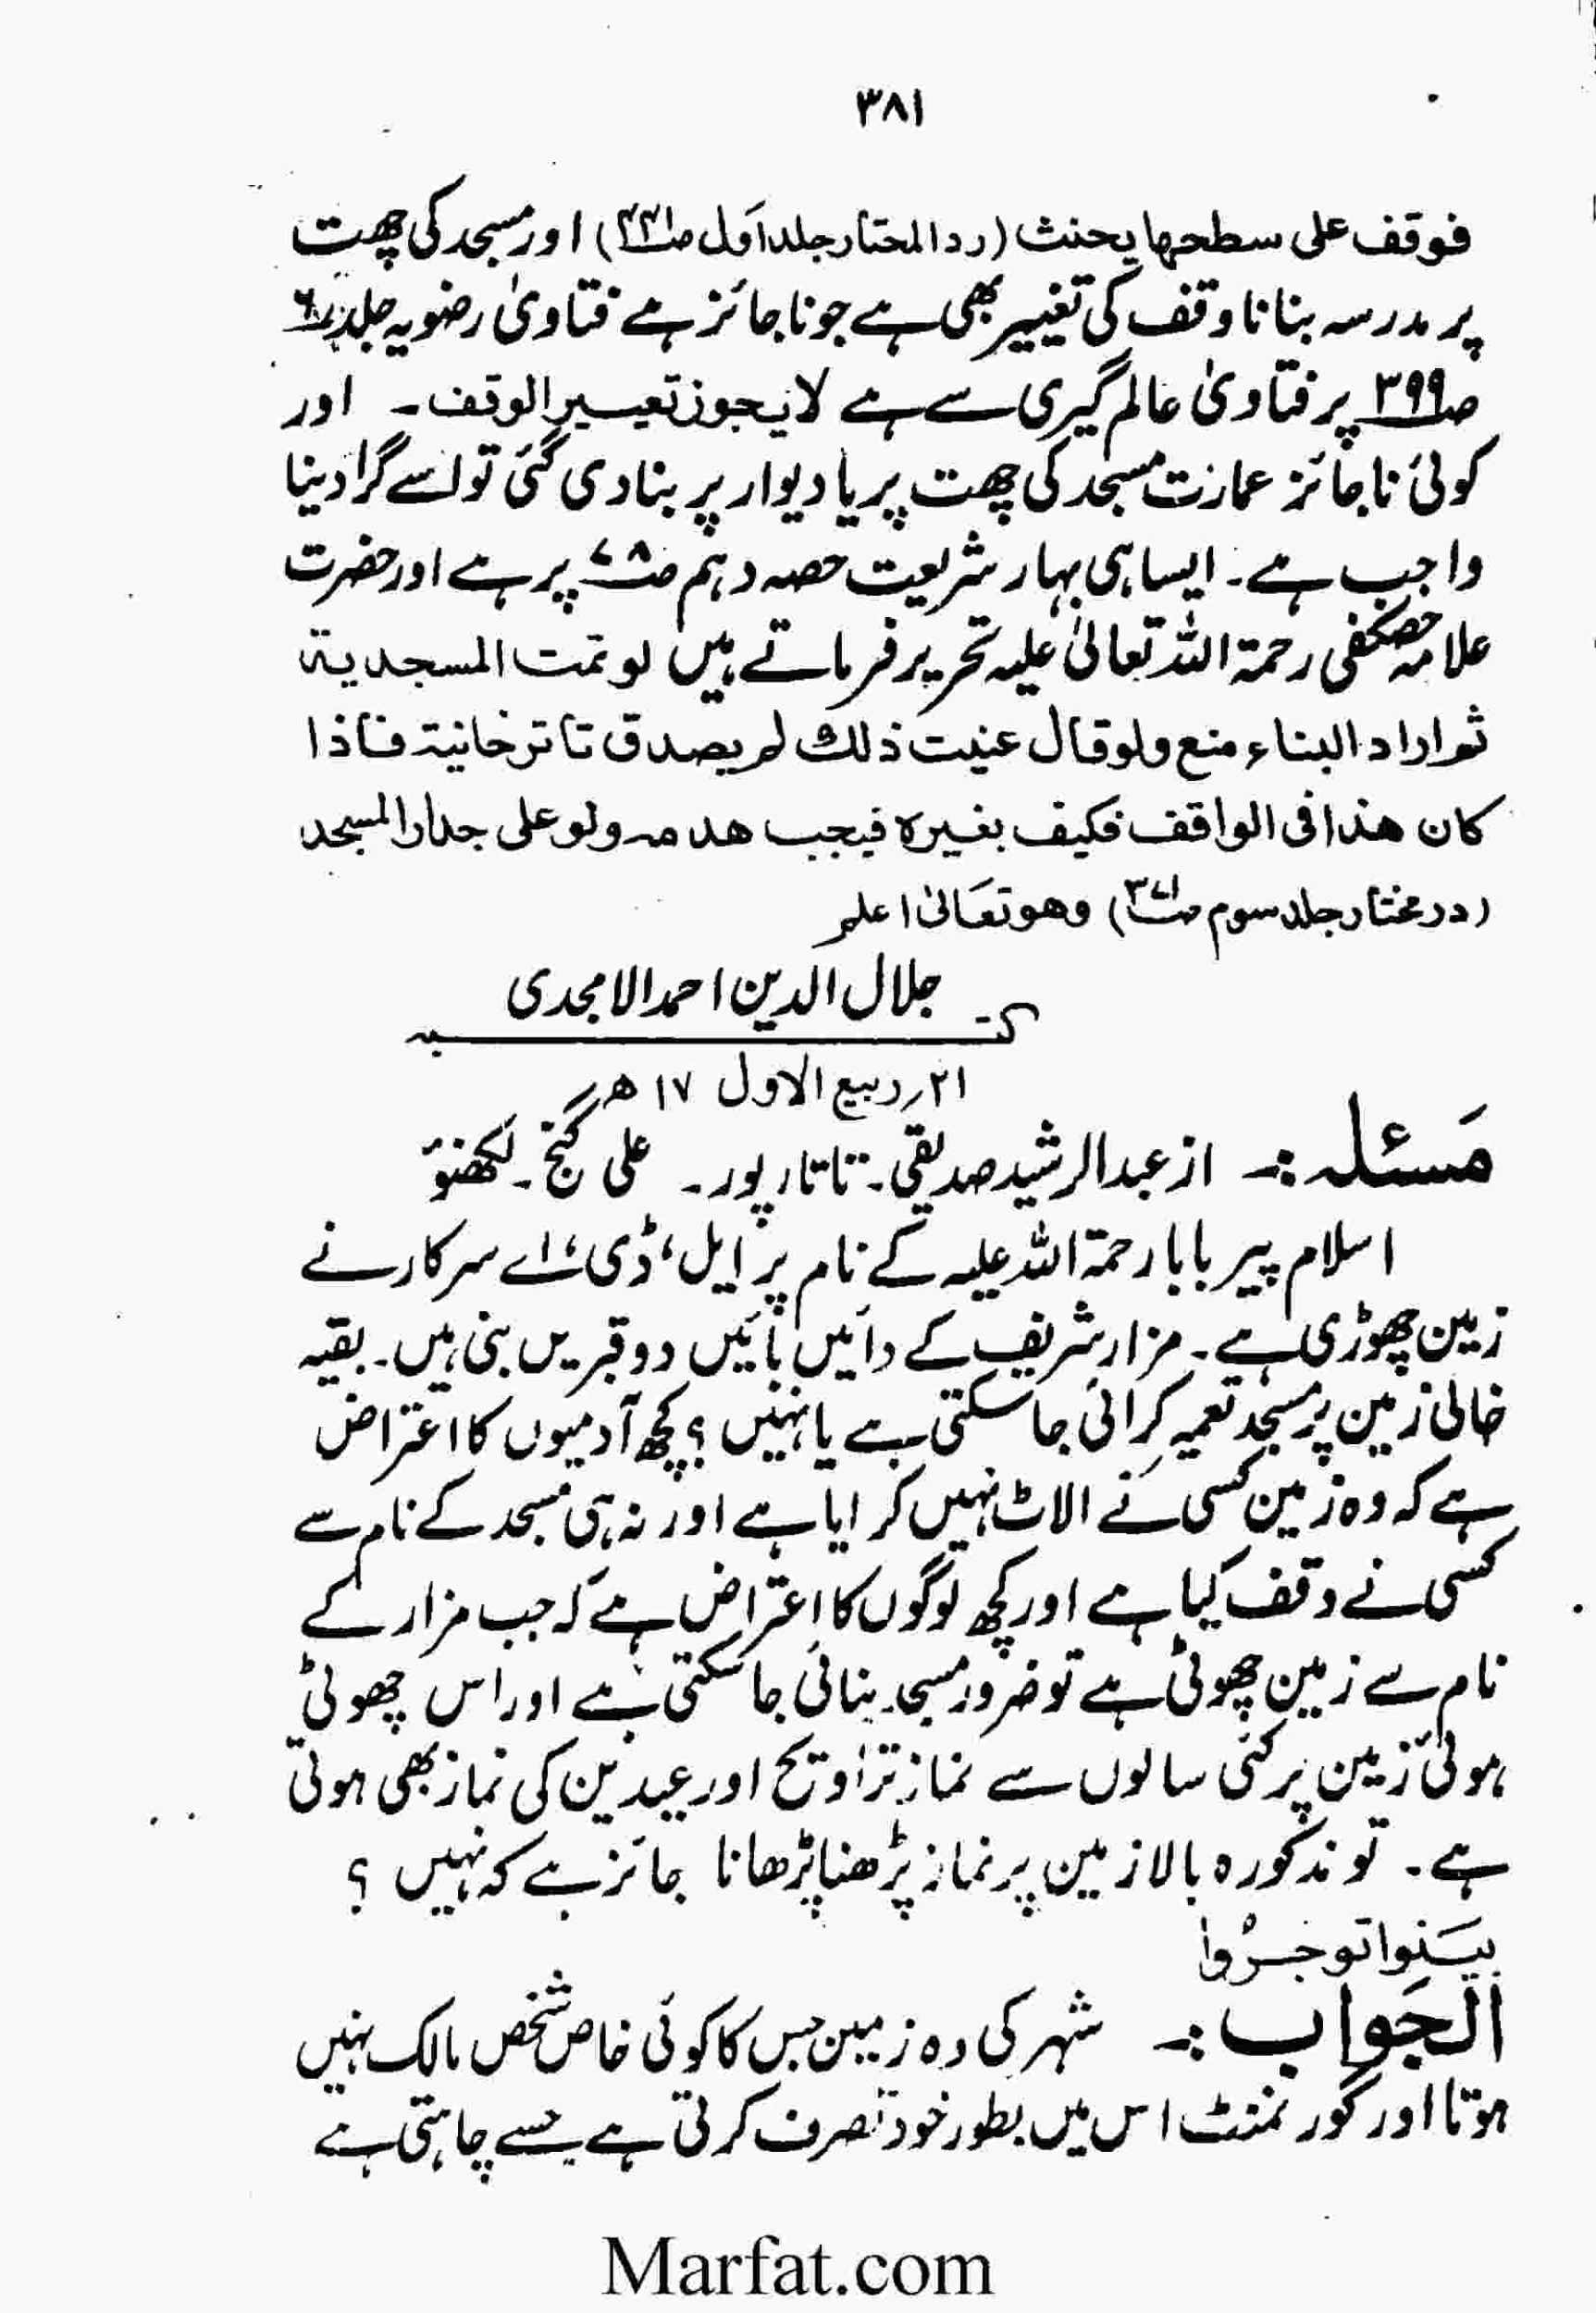 ۳۸۱
فوقف علی سطحها یحنث (رد المحتار جلد اول ص۴۴۱) اور مسجد کی چھت
پر مدرسہ بنانا وقف کی تغییر بھی ہے جو ناجائز ہے فتاویٰ رضویہ جلد ۶
ص۳۹۹ پر فتاویٰ عالم گیری سے ہے لا یجوز تغییر الوقف۔ اور
کوئی ناجائز عمارت مسجد کی چھت پر یا دیوار پر بنا دی گئی تو اسے گرا دینا
واجب ہے۔ ایسا ہی بہار شریعت حصہ دہم ص۷۸ پر ہے اور حضرت
علامہ حصکفی رحمۃ اللہ تعالیٰ علیہ تحریر فرماتے ہیں لو تمت المسجدیة
ثم اراد البناء منع ولو قال عنیت ذلك لم یصدق تاترخانیة فاذا
کان هذا فی الواقف فکیف بغیره فیجب هدمه ولو علی جدار المسجد
(در مختار جلد سوم ص۳۷۱) وهو تعالیٰ اعلم
کتبہ جلال الدین احمد الامجدی
۲۱؍ ربیع الاول ۱۷ ھ
مَسئلہ:۔ از عبد الرشید صدیقی۔ تاتار پور۔ علی گنج۔ لکھنؤ
اسلام پیر بابا رحمۃ اللہ علیہ کے نام پر ایل، ڈی، اے سرکار نے
زمین چھوڑی ہے۔ مزار شریف کے دائیں بائیں دو قبریں بنی ہیں۔ بقیہ
خالی زمین پر مسجد تعمیر کرائی جا سکتی ہے یا نہیں ؟ کچھ آدمیوں کا اعتراض
ہے کہ وہ زمین کسی نے الاٹ نہیں کرایا ہے اور نہ ہی مسجد کے نام سے
کسی نے وقف کیا ہے اور کچھ لوگوں کا اعتراض ہے کہ جب مزار کے
نام سے زمین چھوٹی ہے تو ضرور مسجد بنائی جا سکتی ہے اور اس چھوٹی
ہوئی زمین پر کئی سالوں سے نماز تراویح اور عیدین کی نماز بھی ہوتی
ہے۔ تو مذکورہ بالا زمین پر نماز پڑھنا پڑھانا جائز ہے کہ نہیں ؟
بیَنوا توجرُوا
الجَواب:۔ شہر کی وہ زمین جس کا کوئی خاص شخص مالک نہیں
ہوتا اور گورنمنٹ اس میں بطور خود تصرف کرتی ہے جسے چاہتی ہے
Marfat.com